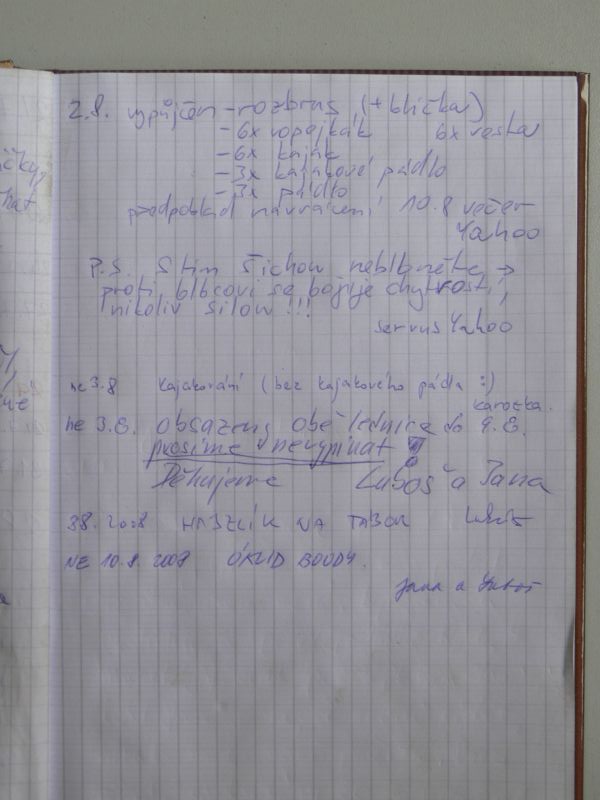 2.8. vypůjčen - rozbrus (+ blička)
- 6x kopajkák 6x vesta
- 6x kajak
- 3x kajakové pádlo
- 3x pádlo
předpoklad navrácení 10.8 večer
Yahoo
P.S. S tím Šichow neblbněte →
proti blbcovi se bojuje chytrostí,
nikoliv silow !!!
servus Yahoo
ne 3.8 Kajakování (bez kajakového pádla :)
karotka.
ne 3.8. obsazeny obě lednice do 9.8.
prosíme nevypínat !
Děkujeme Luboš a Jana
3.8. 2008 NA TÁBOR
NE 10.8. 2008 ÚKLID BOUDY.
Jana a Luboš